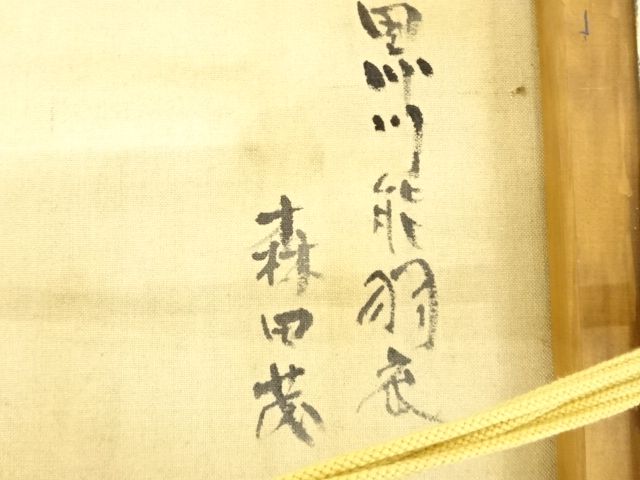 黒川能羽衣
森田茂